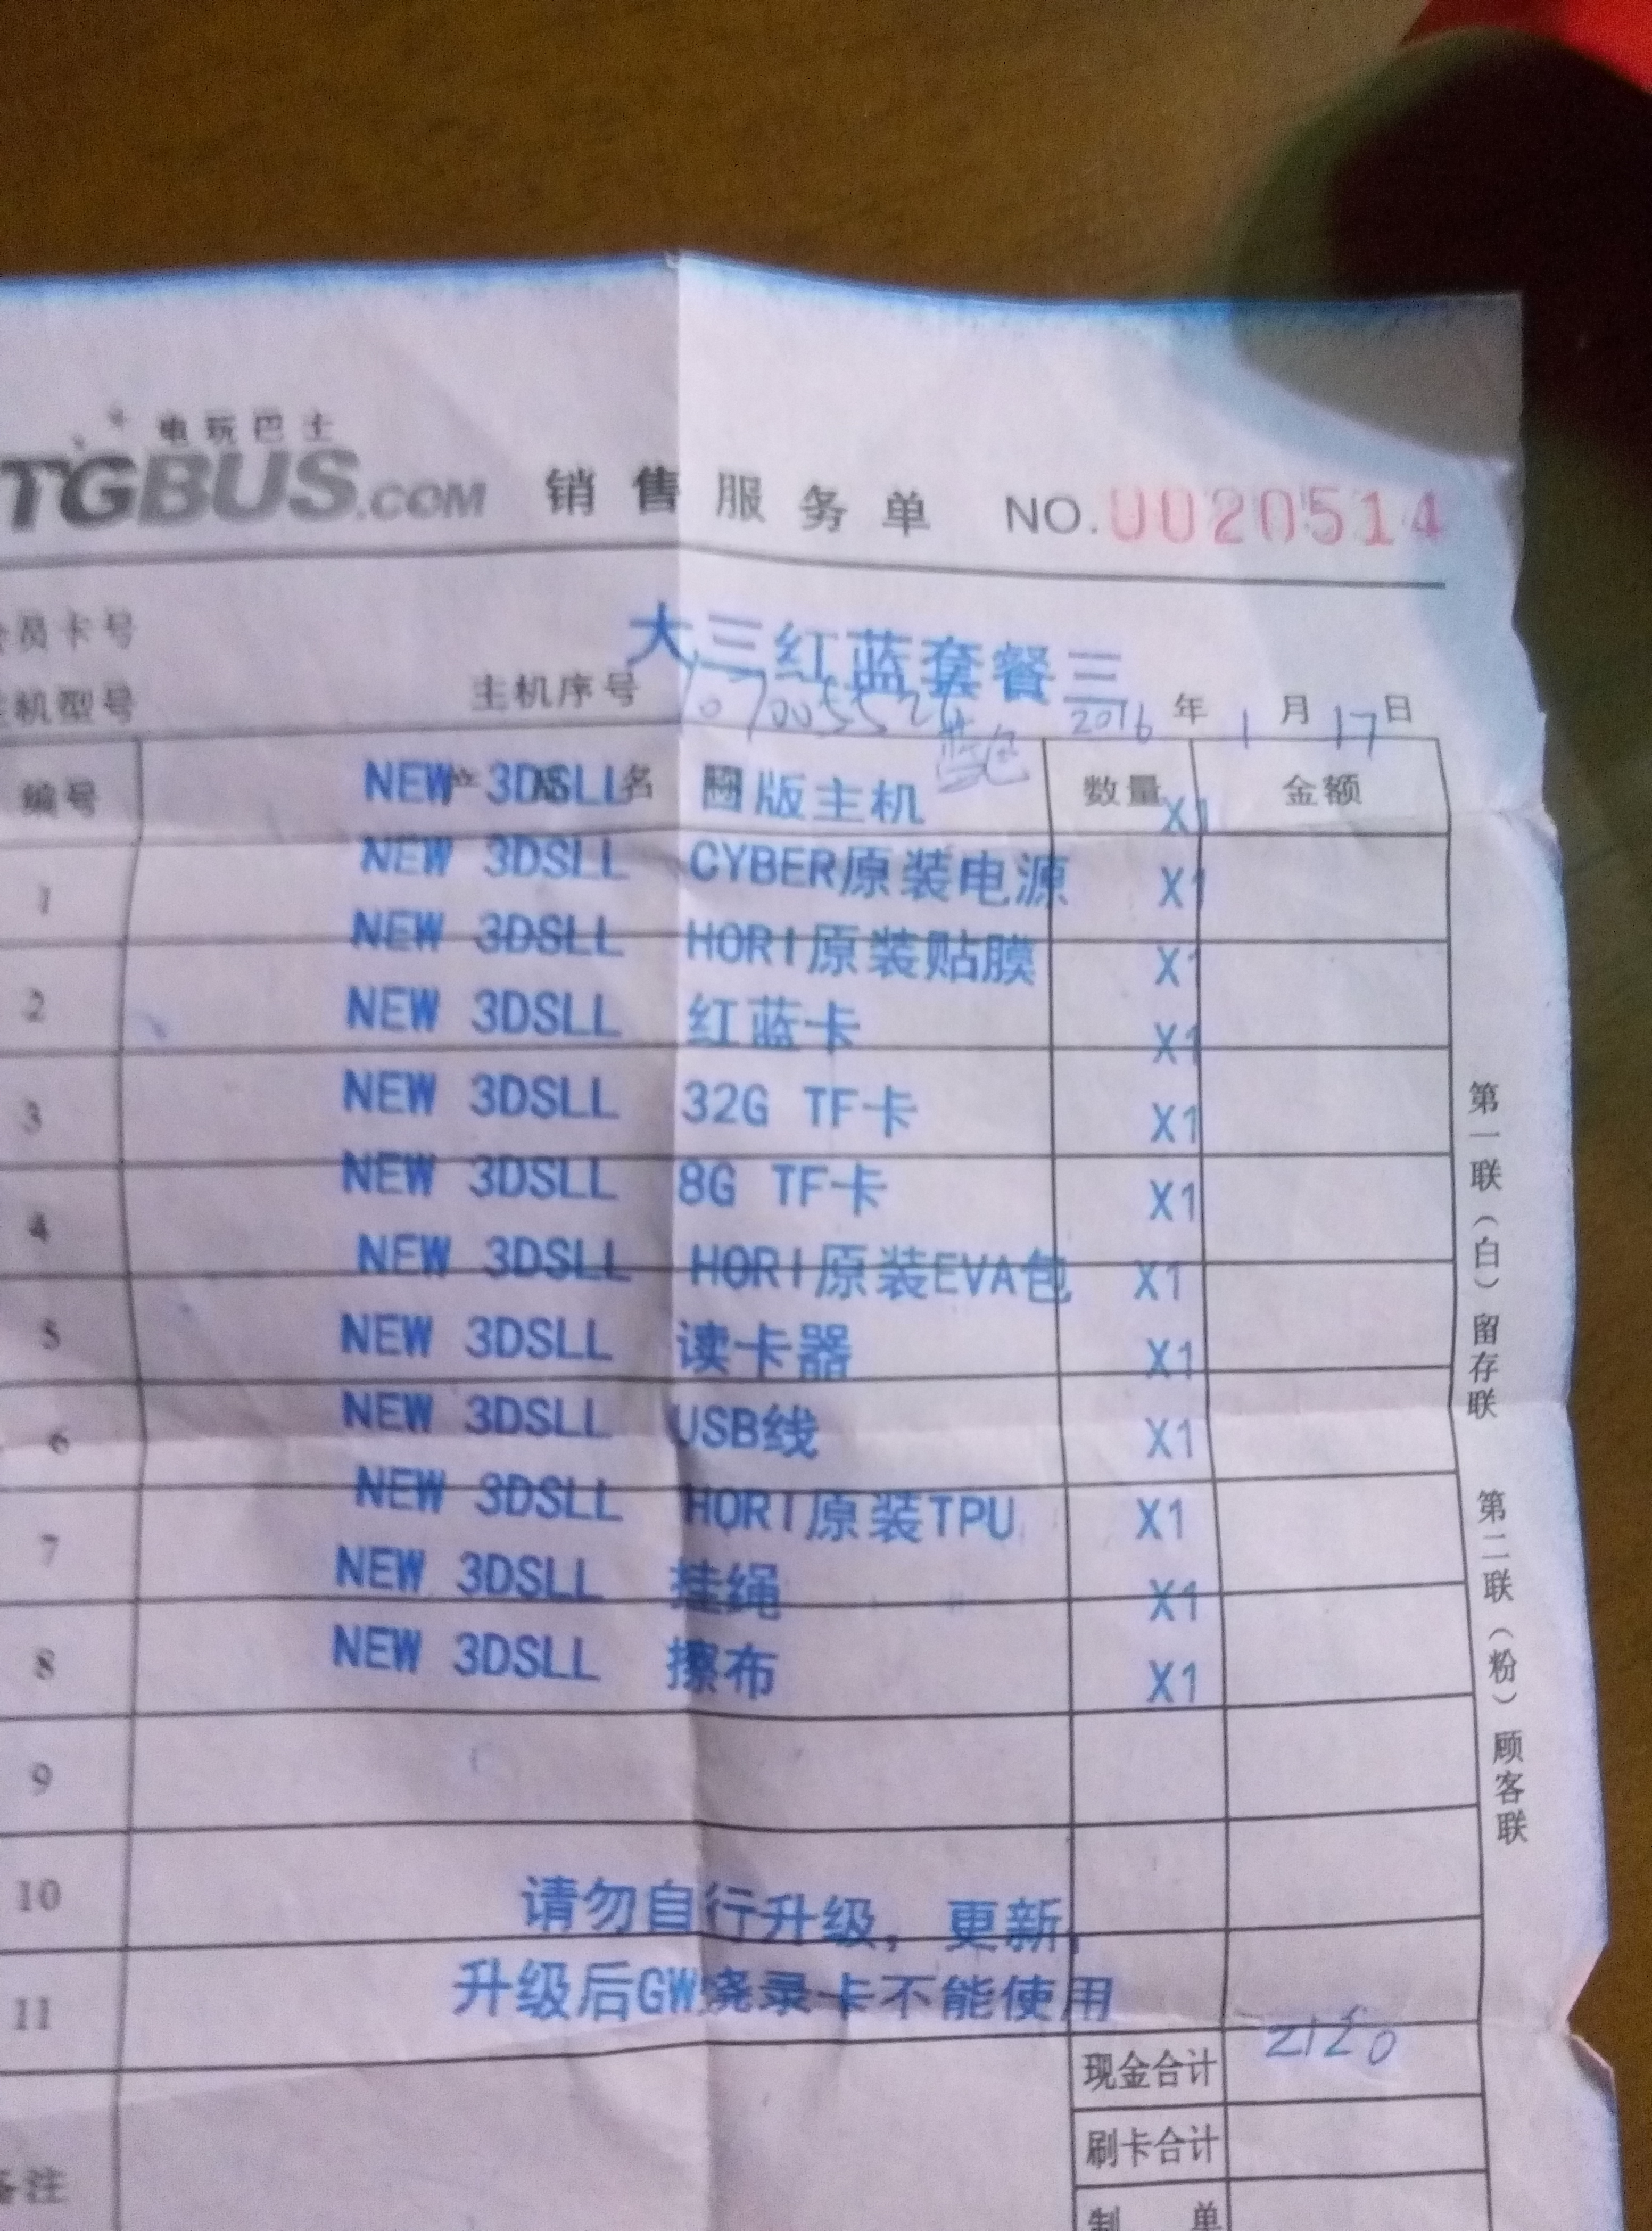 电玩巴士
TGBUS.COM 销售服务单 NO.0020514
会员卡号 大三红蓝套餐三
主机型号 主机序号 2016 年 1 月 17 日
蓝色
编号 数量 金额
NEW 3DSLL 版主机 X1
1 NEW 3DSLL CYBER原装电源 X1
NEW 3DSLL HORI原装贴膜 X1
2 NEW 3DSLL 红蓝卡 X1
3 NEW 3DSLL 32G TF卡 X1
4 NEW 3DSLL 8G TF卡 X1
NEW 3DSLL HORI原装EVA包 X1
5 NEW 3DSLL 读卡器 X1
6 NEW 3DSLL USB线 X1
7 NEW 3DSLL HORI原装TPU X1
NEW 3DSLL 挂绳 X1
8 NEW 3DSLL 擦布 X1
9
10 请勿自行升级，更新，
11 升级后GW烧录卡不能使用
现金合计
刷卡合计
备注 制 单
第一联（白）留存联
第二联（粉）顾客联